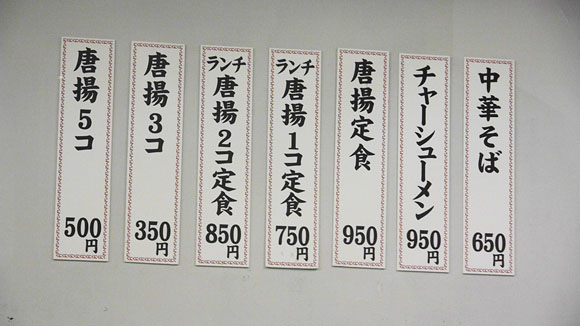 中華そば
650円
チャーシューメン
950円
唐揚定食
950円
ランチ
唐揚1コ定食
750円
ランチ
唐揚2コ定食
850円
唐揚3コ
350円
唐揚5コ
500円